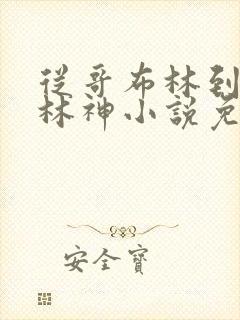 從哥布林到
林神小說免
安全寶